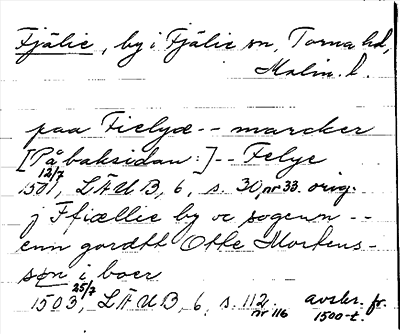 Fjälie, by i Fjälie sn, Torna hd,
Malm. l.
paa Fielyæ -- marcker
[På baksidan:] -- Felye
12/7 1501, LÄUB, 6, s. 30, nr 33. orig.
j Ffiællie by oc sogenn --
enn gordtt Otte Mortens-
søn i boer
25/7 1503, LÄUB, 6, s. 112, nr 116 avskr. fr. 1500-t.